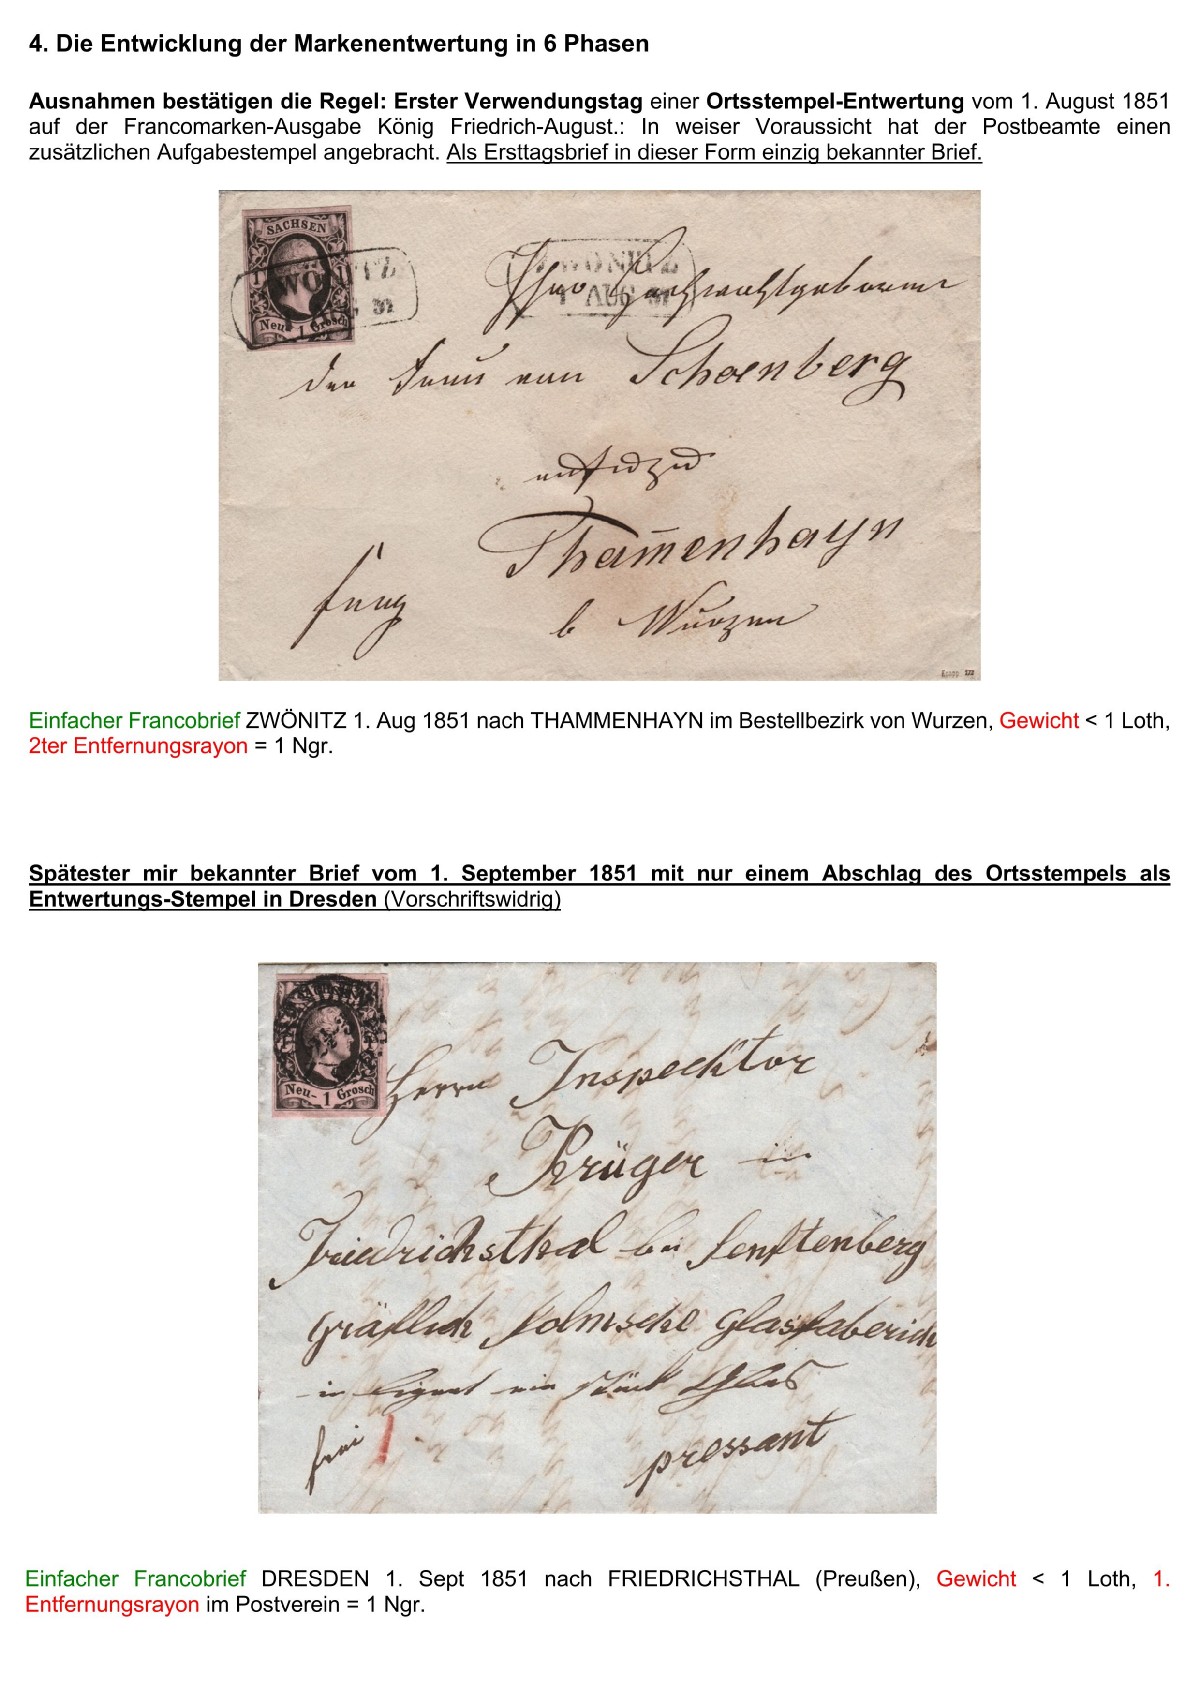 4. Die Entwicklung der Markenentwertung in 6 Phasen
Ausnahmen bestätigen die Regel: Erster Verwendungstag einer Ortsstempel-Entwertung vom 1. August 1851
auf der Francomarken-Ausgabe König Friedrich-August.: In weiser Voraussicht hat der Postbeamte einen
zusätzlichen Aufgabestempel angebracht. Als Ersttagsbrief in dieser Form einzig bekannter Brief.
SACHSEN
ZWÖNITZ
Neu- 1 Grosch
ZWÖNITZ
1 AUG 51
von Schoenberg
Tham̄enhayn
b Wurzen
Einfacher Francobrief ZWÖNITZ 1. Aug 1851 nach THAMMENHAYN im Bestellbezirk von Wurzen, Gewicht < 1 Loth,
2ter Entfernungsrayon = 1 Ngr.
Spätester mir bekannter Brief vom 1. September 1851 mit nur einem Abschlag des Ortsstempels als
Entwertungs-Stempel in Dresden (Vorschriftswidrig)
SACHSEN
Neu- 1 Grosch
Herrn Inspecktor
Krüger in
Friedrichsthal bei Senftenberg
gräflich Solmsche Glasfaberick
in ein stück Glas
frei 1
pressant
Einfacher Francobrief DRESDEN 1. Sept 1851 nach FRIEDRICHSTHAL (Preußen), Gewicht < 1 Loth, 1.
Entfernungsrayon im Postverein = 1 Ngr.